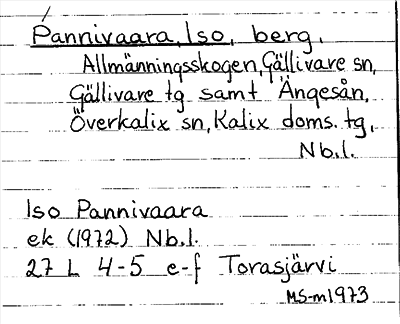 Pannivaara, Iso, berg,
Allmänningsskogen, Gällivare sn,
Gällivare tg samt Ängesån,
Överkalix sn, Kalix doms. tg,
Nb.l.
Iso Pannivaara
ek (1972) Nb.l.
27 L 4-5 e-f Torasjärvi
MS-m1973